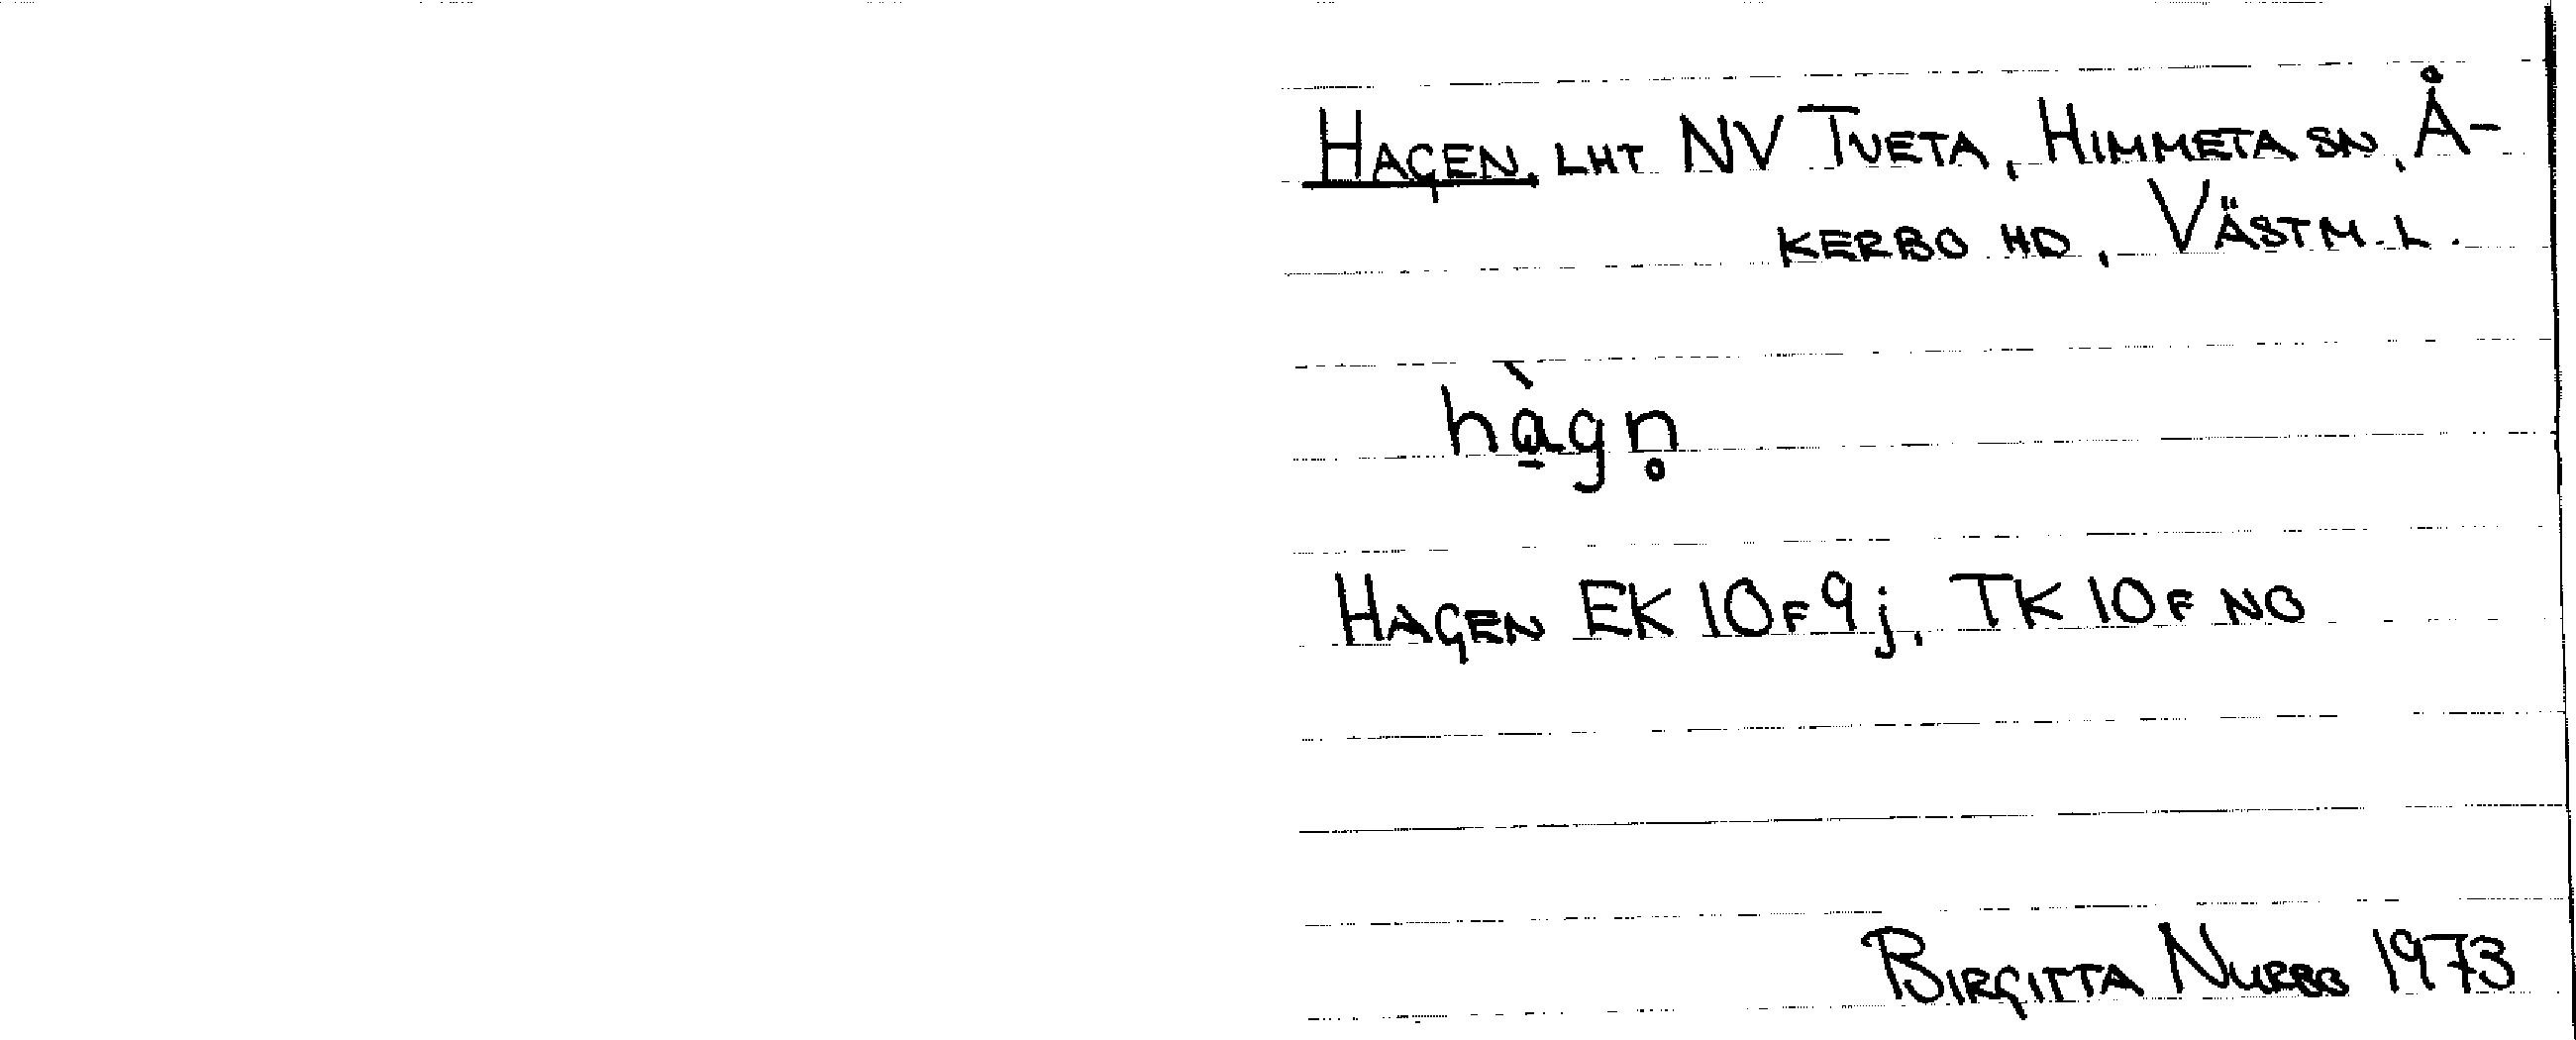 HAGEN, LHT NV TVETA, HIMMETA SN, Å-
KERBO HD, VÄSTM. L.
hà̱gn̥
HAGEN EK 10F9j, TK 10F NO
BIRGITTA NURBO 1973